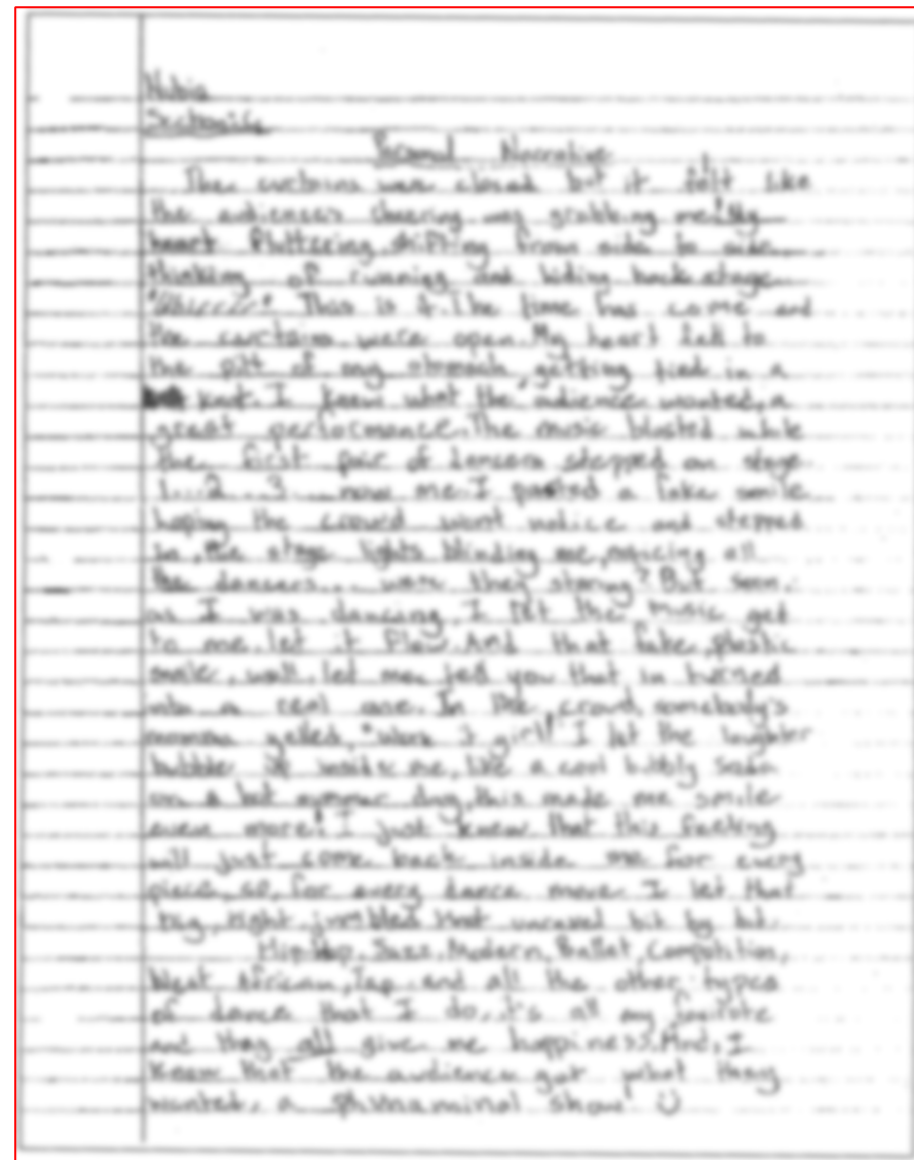 Nubia
Personal Narrative
The curtains were closed but it felt like
the audiences cheering was grabbing me! My
heart fluttering, shifting from side to side
thinking of running and hiding back stage
This is it. The time has come and
the curtains were open. My heart fell to
the pitt of my stomach, getting tied in a
knot. I knew what the audience wanted, a
great performance. The music blasted while
the first pair of dancers stepped on stage
1...2...3... now me. I pasted a fake smile
hoping the crowd wont notice and stepped
in, the stage lights blinding me, noticing all
the dancers... were they staring? But soon
as I was dancing, I let the music get
to me, let it flow. And that fake, plastic
smile, well, let me tell you that in turned
into a real one. In the crowd, somebody's
momma yelled, "Work it girl!" I let the laughter
bubble up inside me, like a cool bubbly soda
on a hot summer day, this made me smile
even more! I just knew that this feeling
will just come back inside me for every
piece, so, for every dance move I let that
big, tight, jumbled knot unravel bit by bit.
Hip-Hop, Jazz, Modern, Ballet, Compitition,
West African, Tap and all the other types
of dance that I do, it's all my favirote
and they all give me happiness. And, I
know that the audience got what they
wanted, a phenominal show!